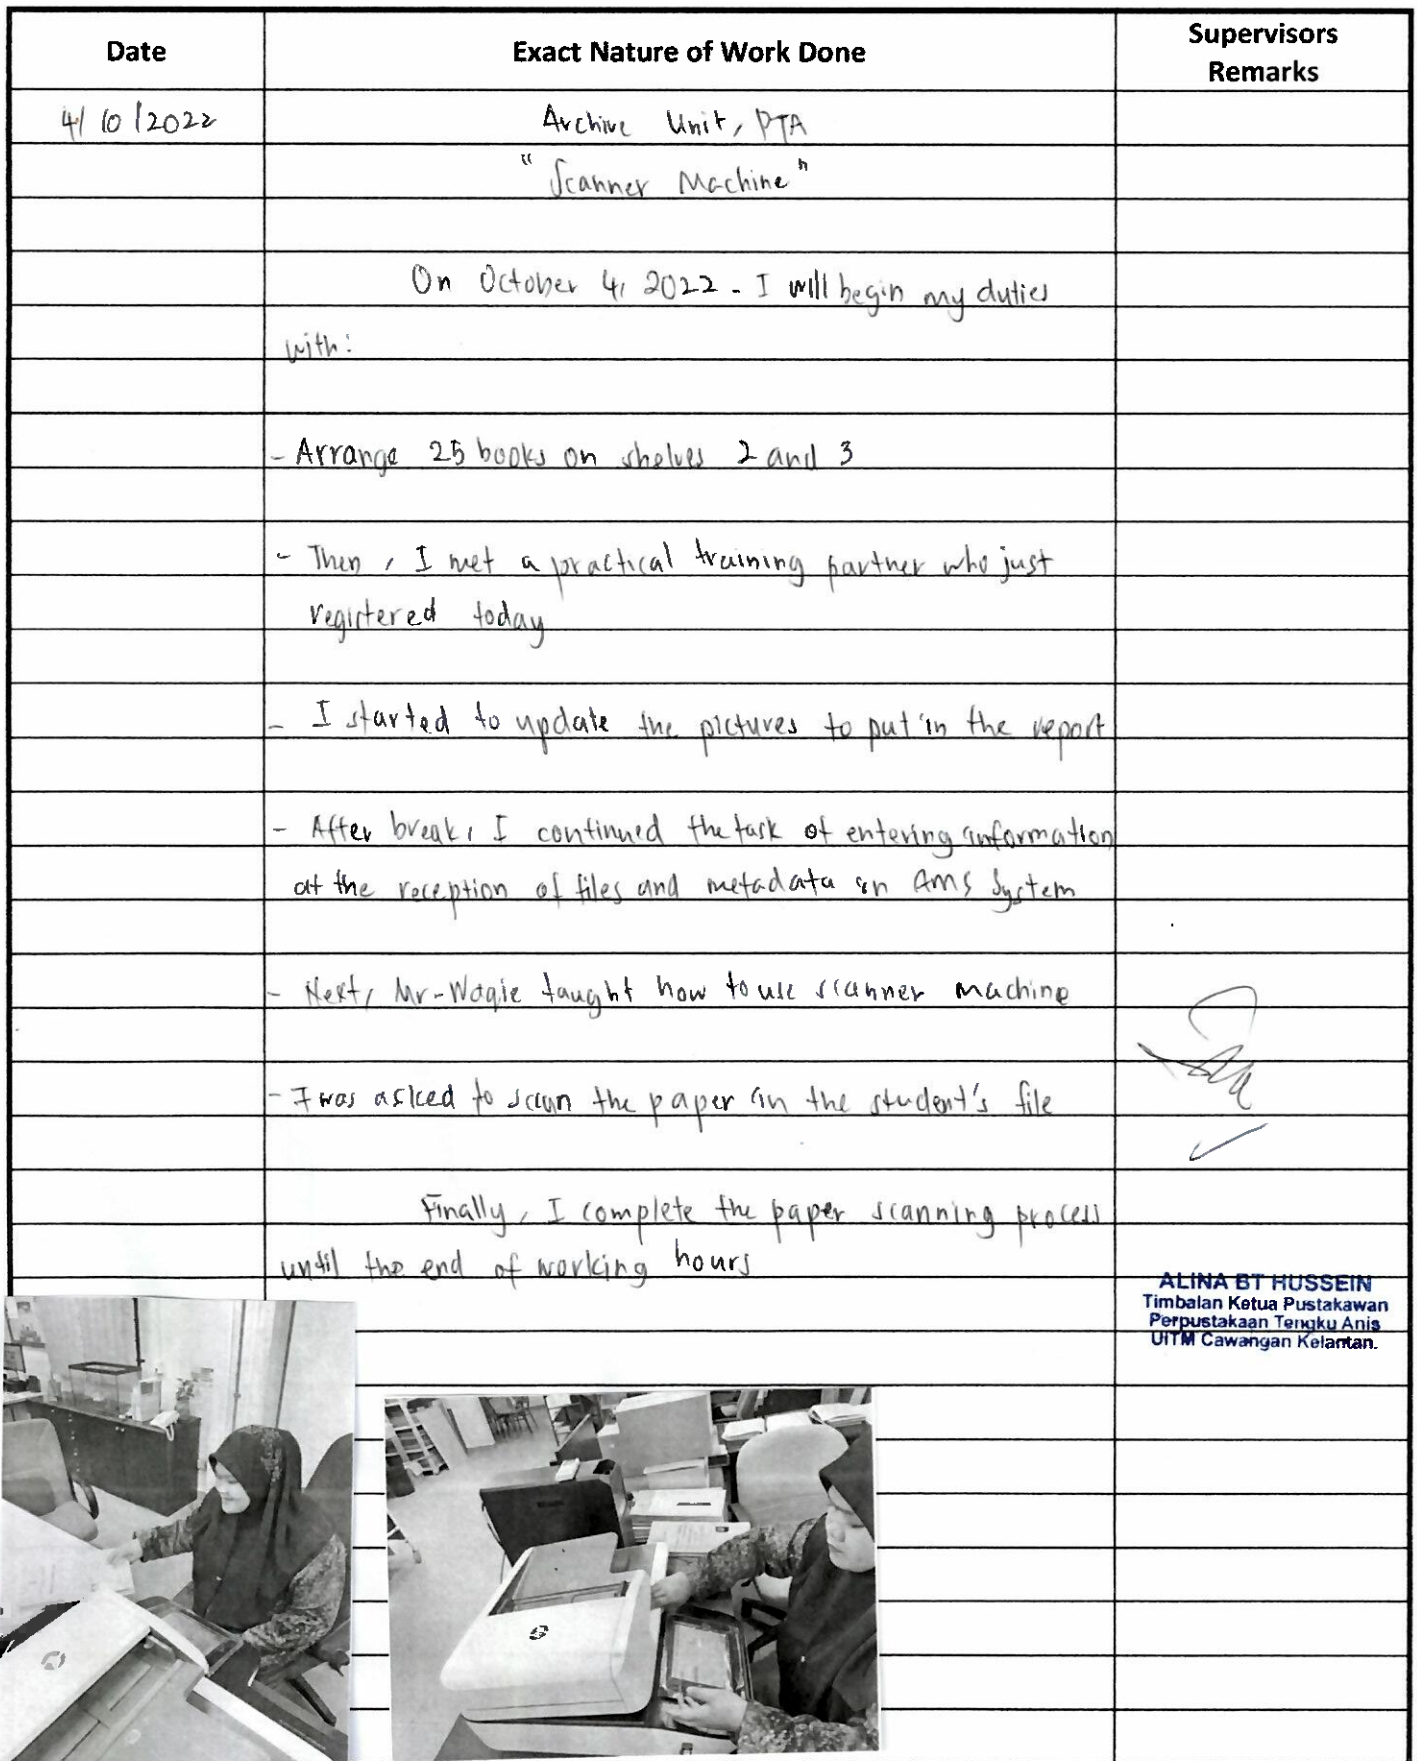 Date
Exact Nature of Work Done
Supervisors
Remarks
4/10/2022
Archive Unit, PTA
"Scanner Machine"
On October 4, 2022 - I will begin my duties
with:
- Arrange 25 books on shelves 2 and 3
- Then, I met a practical training partner who just
registered today
- I started to update the pictures to put in the report
- After break, I continued the task of entering information
at the reception of files and metadata in AMS System
- Next, Mr-Waqie taught how to use scanner machine
- I was asked to scan the paper in the student's file
Finally, I complete the paper scanning process
until the end of working hours
ALINA BT HUSSEIN
Timbalan Ketua Pustakawan
Perpustakaan Tengku Anis
UITM Cawangan Kelantan.
hp